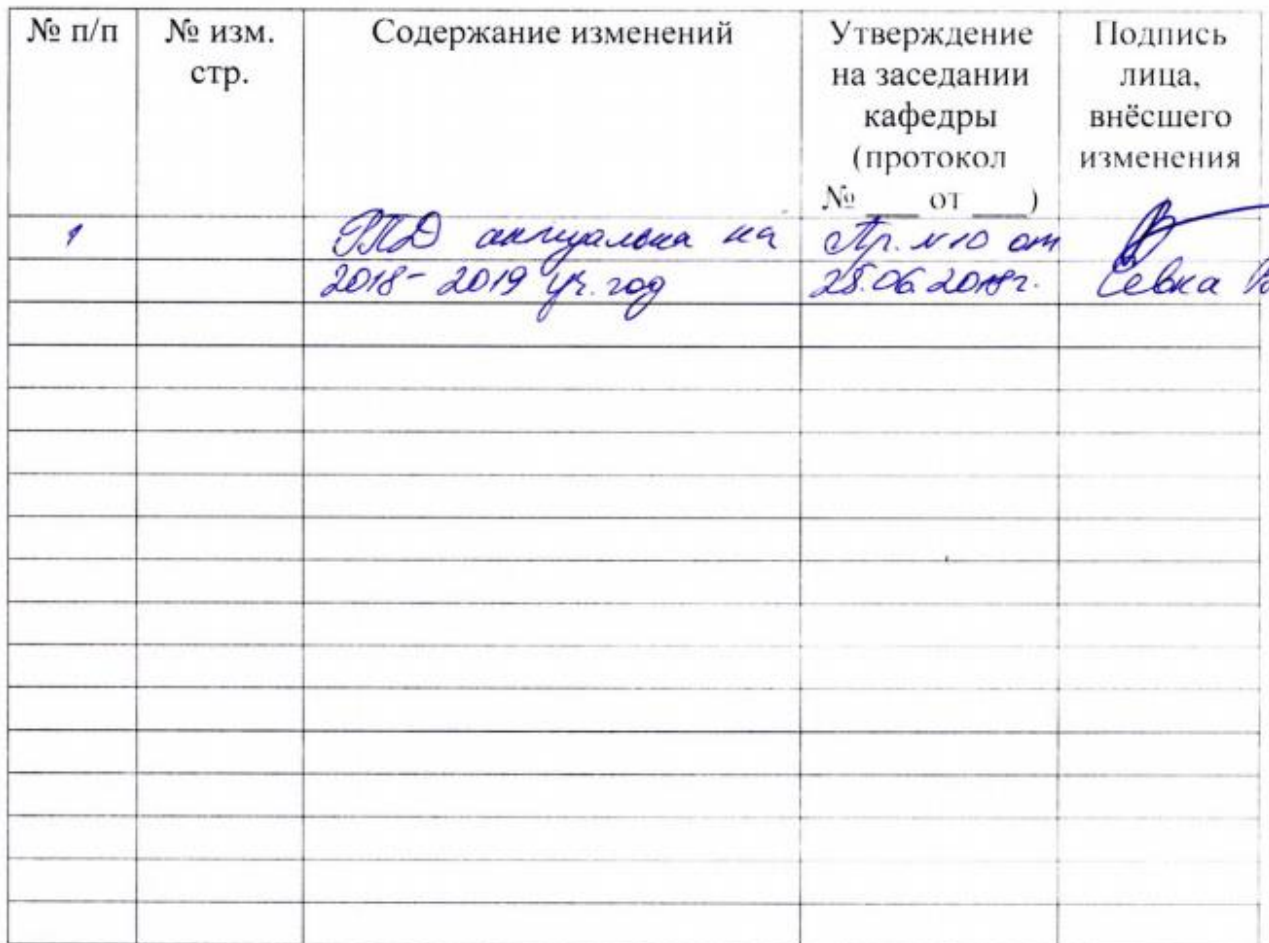 № п/п
№ изм.
стр.
Содержание изменений
Утверждение
на заседании
кафедры
(протокол
№ ___ от ___)
Подпись
лица,
внёсшего
изменения
1
РПД актуальна на
2018- 2019 уч. год
Пр. №10 от
25.06.2018г.
Севка В